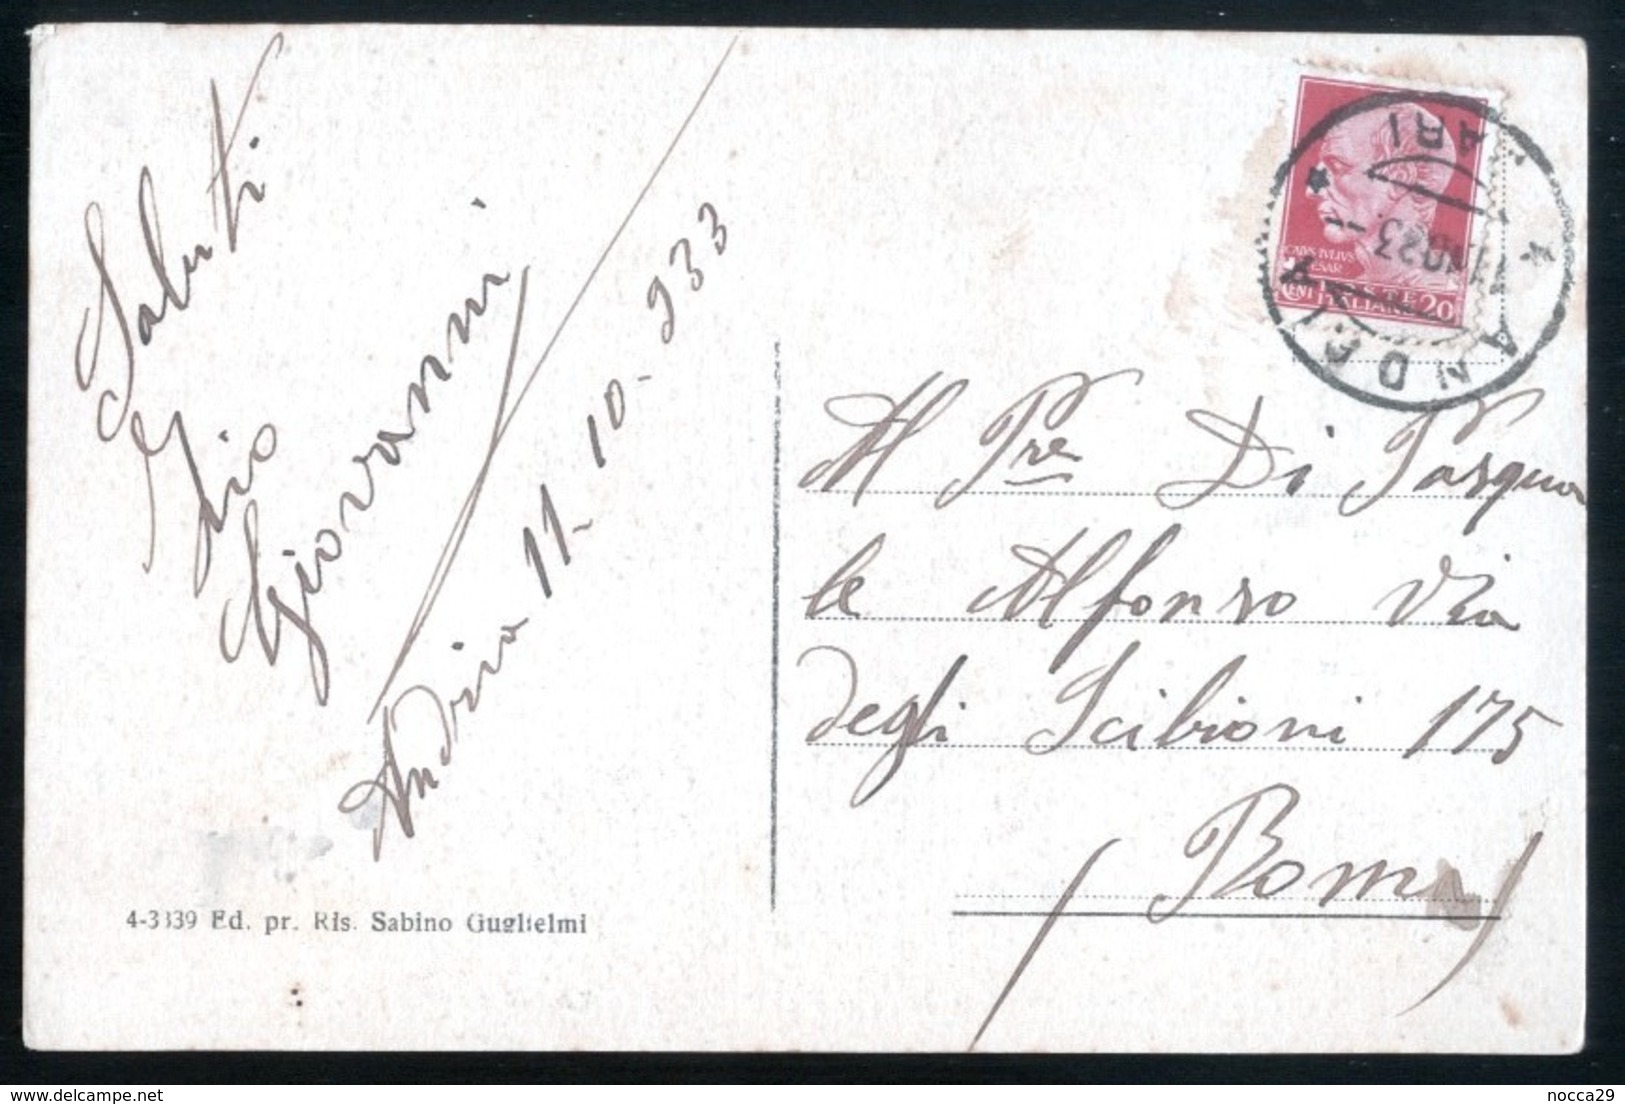 Saluti
Zio
Giovanni
Andria 11-10-933
4-3339 Ed. pr. Ris. Sabino Guglielmi
CENT ITALIANE 20
ANDRIA
BARI
Al Pre Di Pasqua
le Alfonso Via
degli Scibioni 175
(Roma)
nocca29